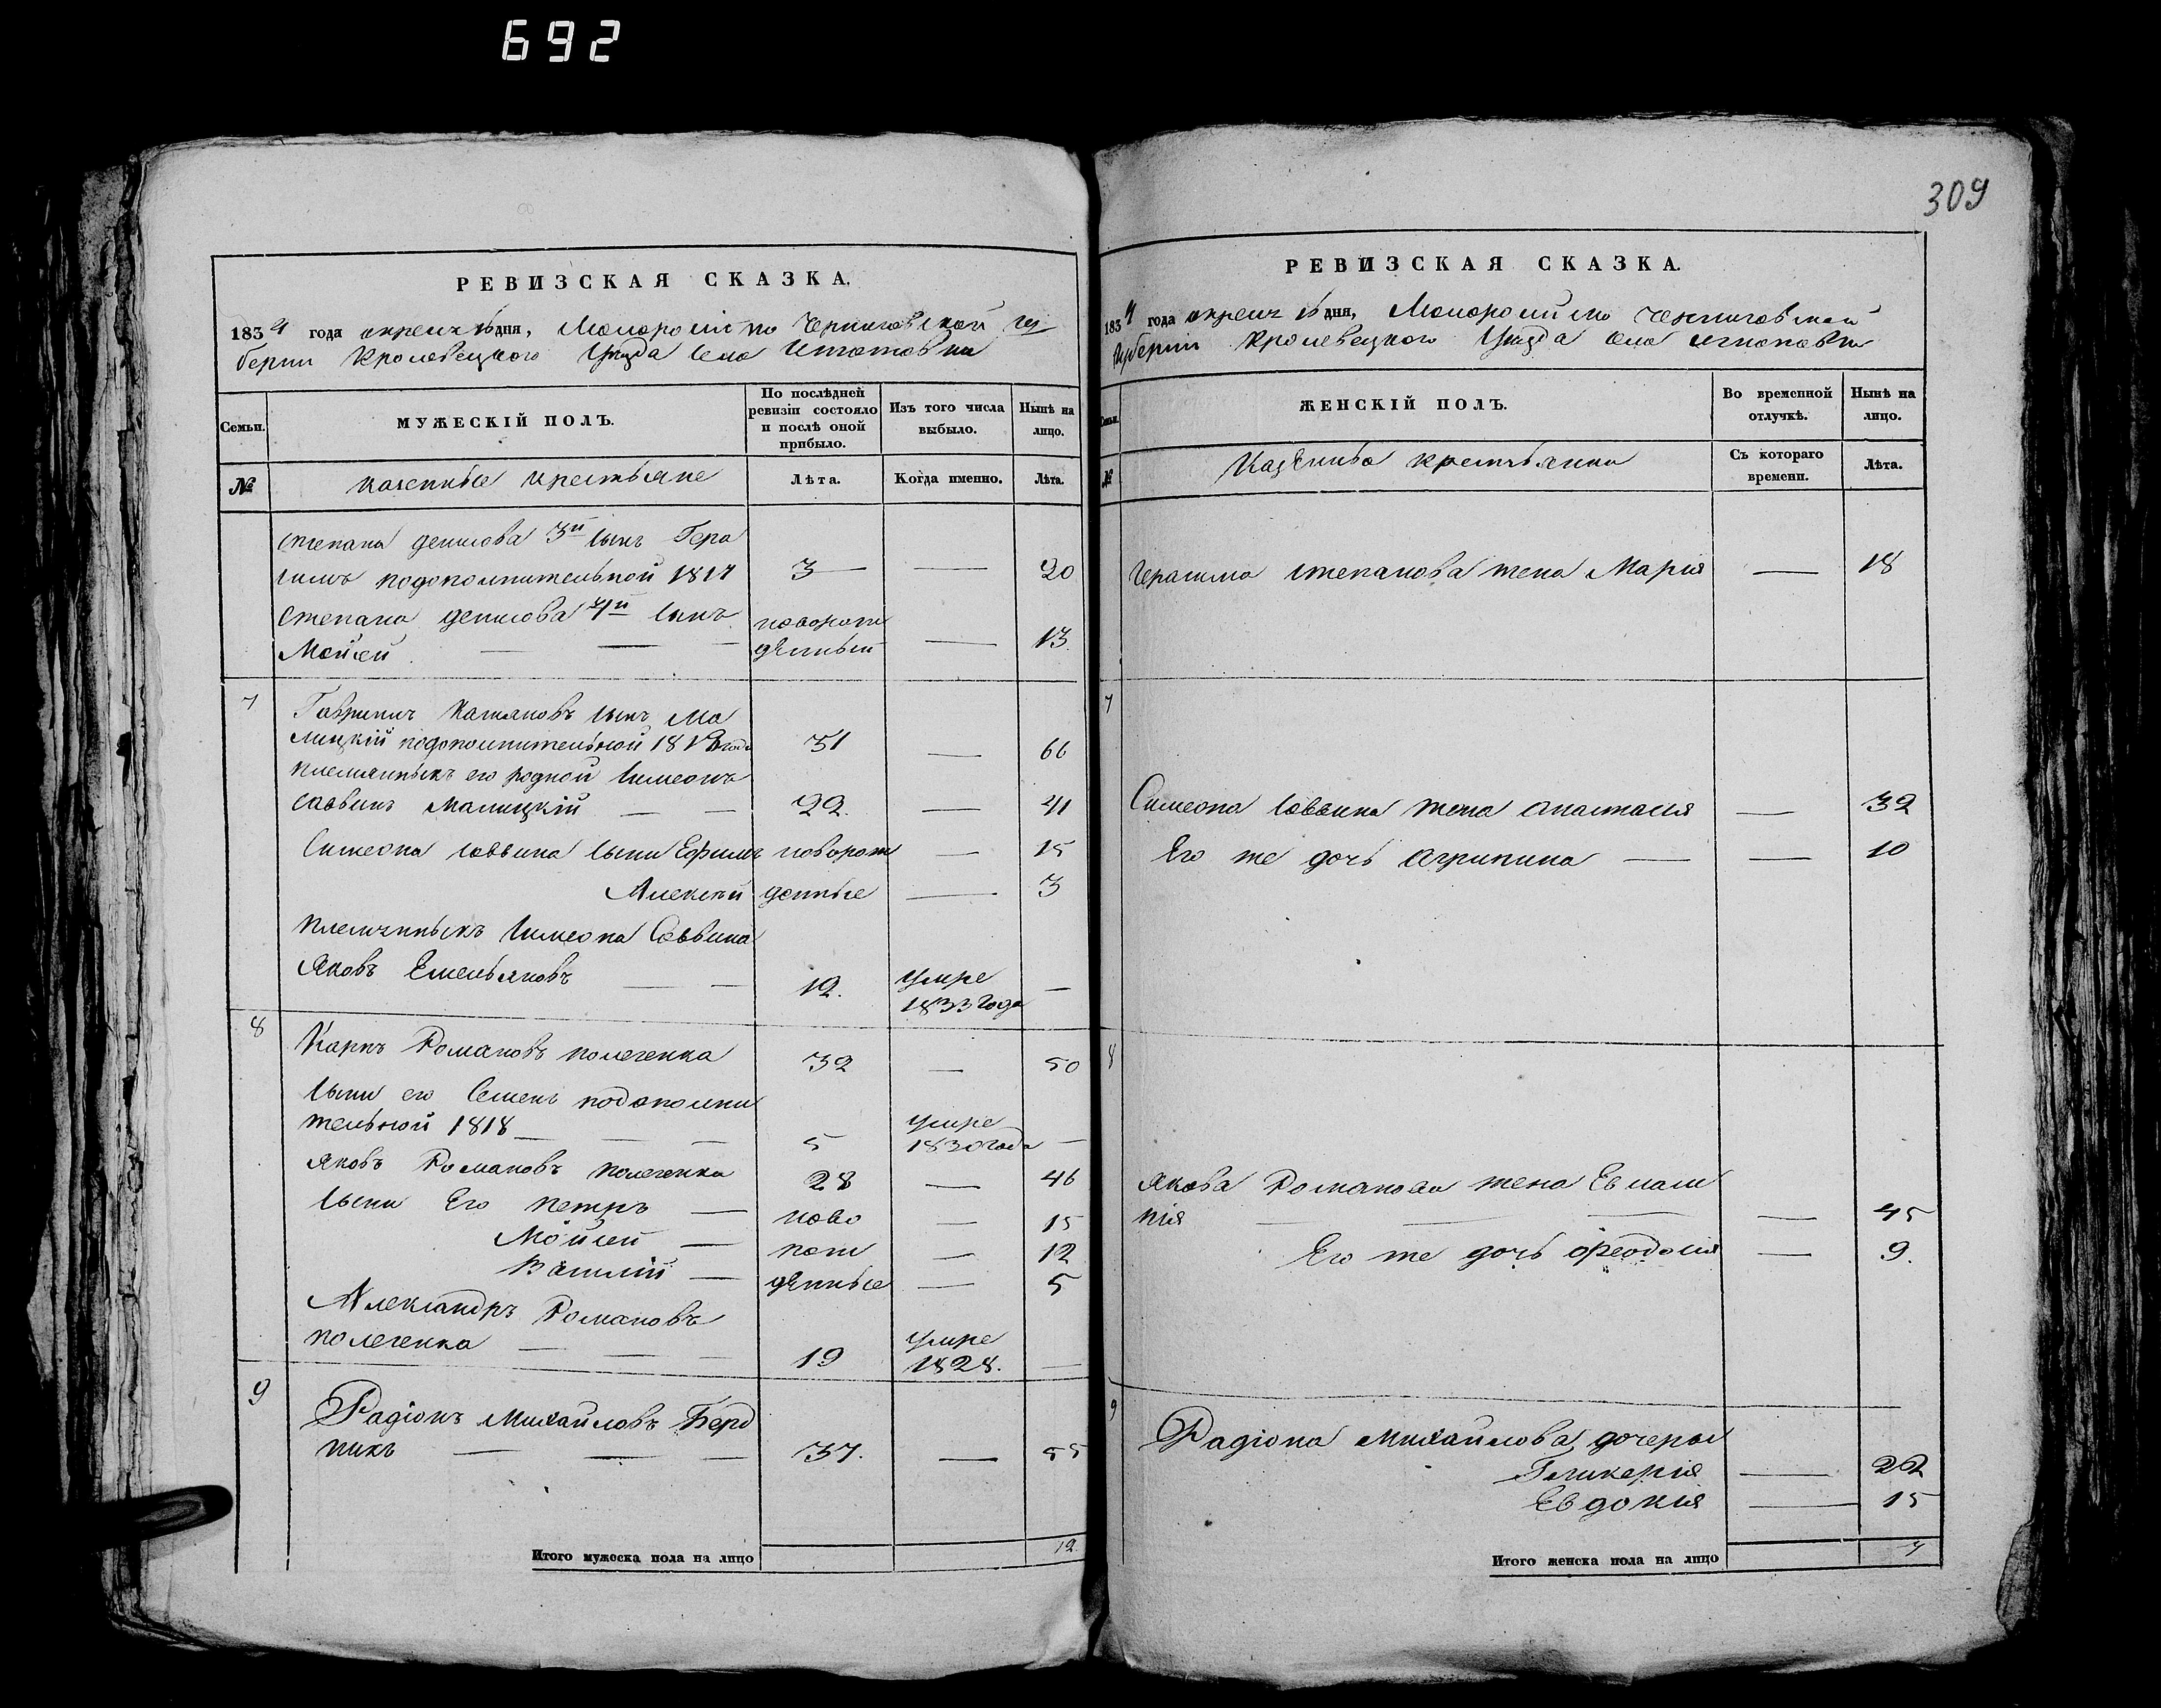 692
309
РЕВИЗСКАЯ СКАЗКА.
1834 года апреля 16 дня, Малоросійско Черниговской гу
берніи Кролевецкого Уезда села Игнатовки
Семьи.
МУЖЕСКІЙ ПОЛЪ.
По послѣдней ревизіи состояло и послѣ оной прибыло.
Изъ того числа выбыло.
Нынѣ на лицо.
№
казенные крестьяне
Лѣта.
Когда именно.
Лѣта.
Степана денисова 3й сынъ Гера
симъ подополнительной 1817 3 — — 20
Степана денисова 4й сынъ новорож
Мойсей — — — денный — 13.
7 сынъ Ма
лицкій подополнительной 181 года 31 — 66
племянныкъ его родной Симеонъ
саввинъ Малицкій — — 22. — 41
Симеона саввина сыни Ефимъ новорож — 15
Алексѣй денные — 3
племянныкъ Симеона Саввина
Яковъ Емельяновъ — — 12. умре 1833 года —
8 Карпъ Романовъ полегенка 32 — 50
сыни его Семенъ подополни
тельной 1818 — — — 5 умре 1830 года —
Яковъ Романовъ полегенка 28 — 46
сыни Его петръ — ново — 15
Мойсей — рож — 12
Василій — денные — 5
Александръ Романовъ
полегенка — — — 19 умре 1828. —
9 Радіонъ Михайловъ Берд
никъ — — — 37. — 55
Итого мужеска пола на лицо 12.
РЕВИЗСКАЯ СКАЗКА.
1834 года апреля 16 дня, Малоросійско Черниговской
губерніи Кролевецкого Уезда села игнатовки
Семьи.
ЖЕНСКІЙ ПОЛЪ.
Во временной отлучкѣ.
Нынѣ на лицо.
№
Казенные крестьянки
Съ котораго времени.
Лѣта.
Герасима степанова жена Марія — 18
7
Симеона саввина жена анастасія — 32
Его же дочь агрипина — — 10
8
Якова Романова жена Евлам
пія — — — — 45
Его же дочь феодосія — 9.
9 Радіона Михайлова дочеры
Гликерія — 22
Евдокія — 15
Итого женска пола на лицо 7